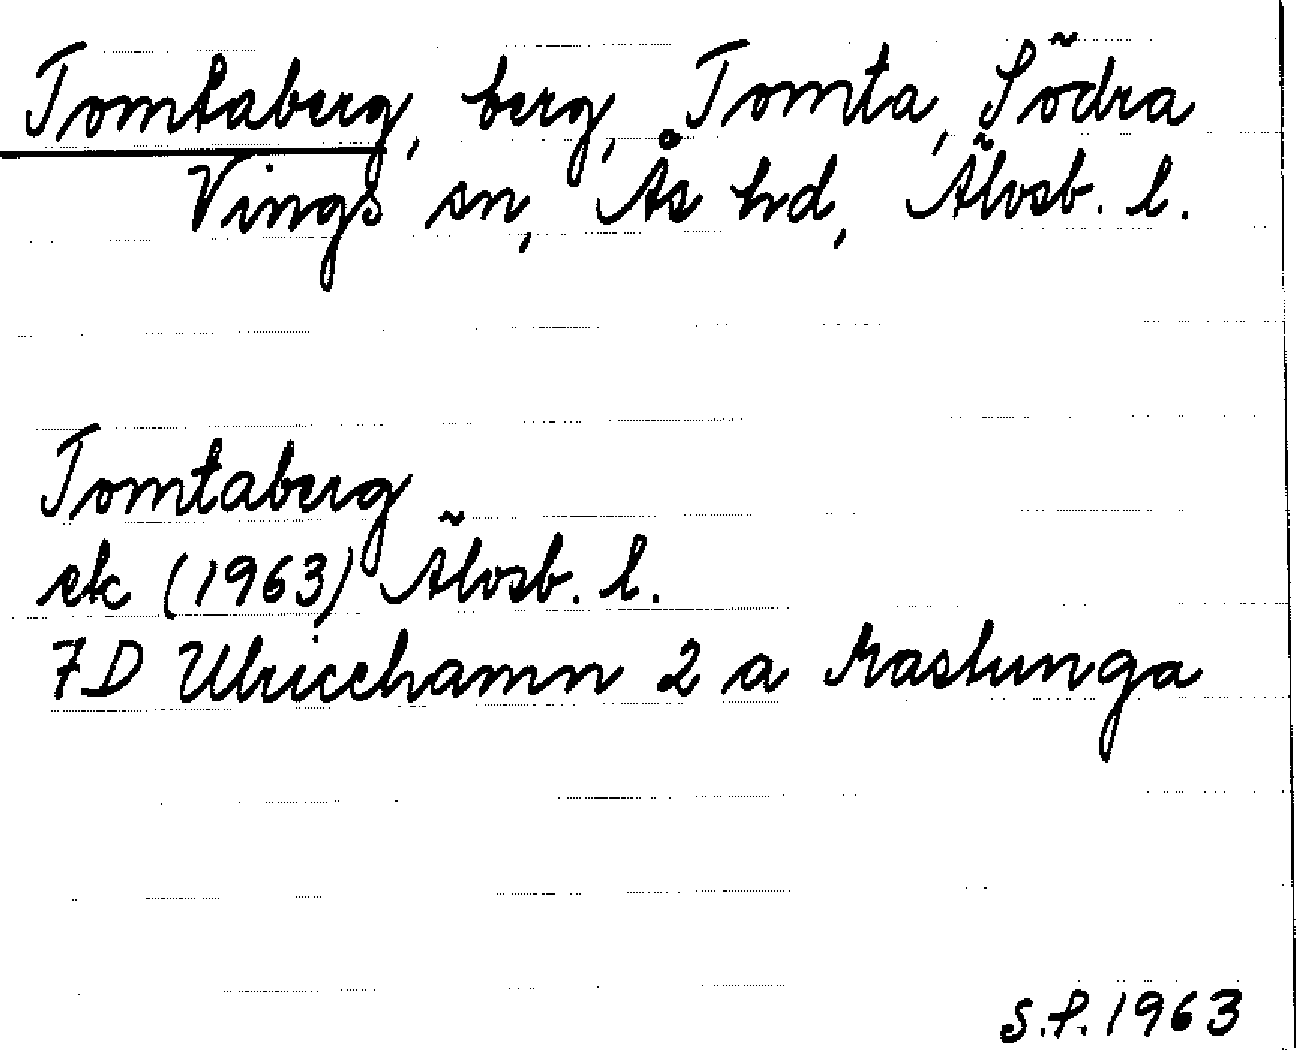 Tomtaberg, berg, Tomta, Södra
Vings sn, Ås hd, Älvsb. l.
Tomtaberg
ek (1963) Älvsb. l.
7D Ulricehamn 2 a Maslunga
S.P. 1963